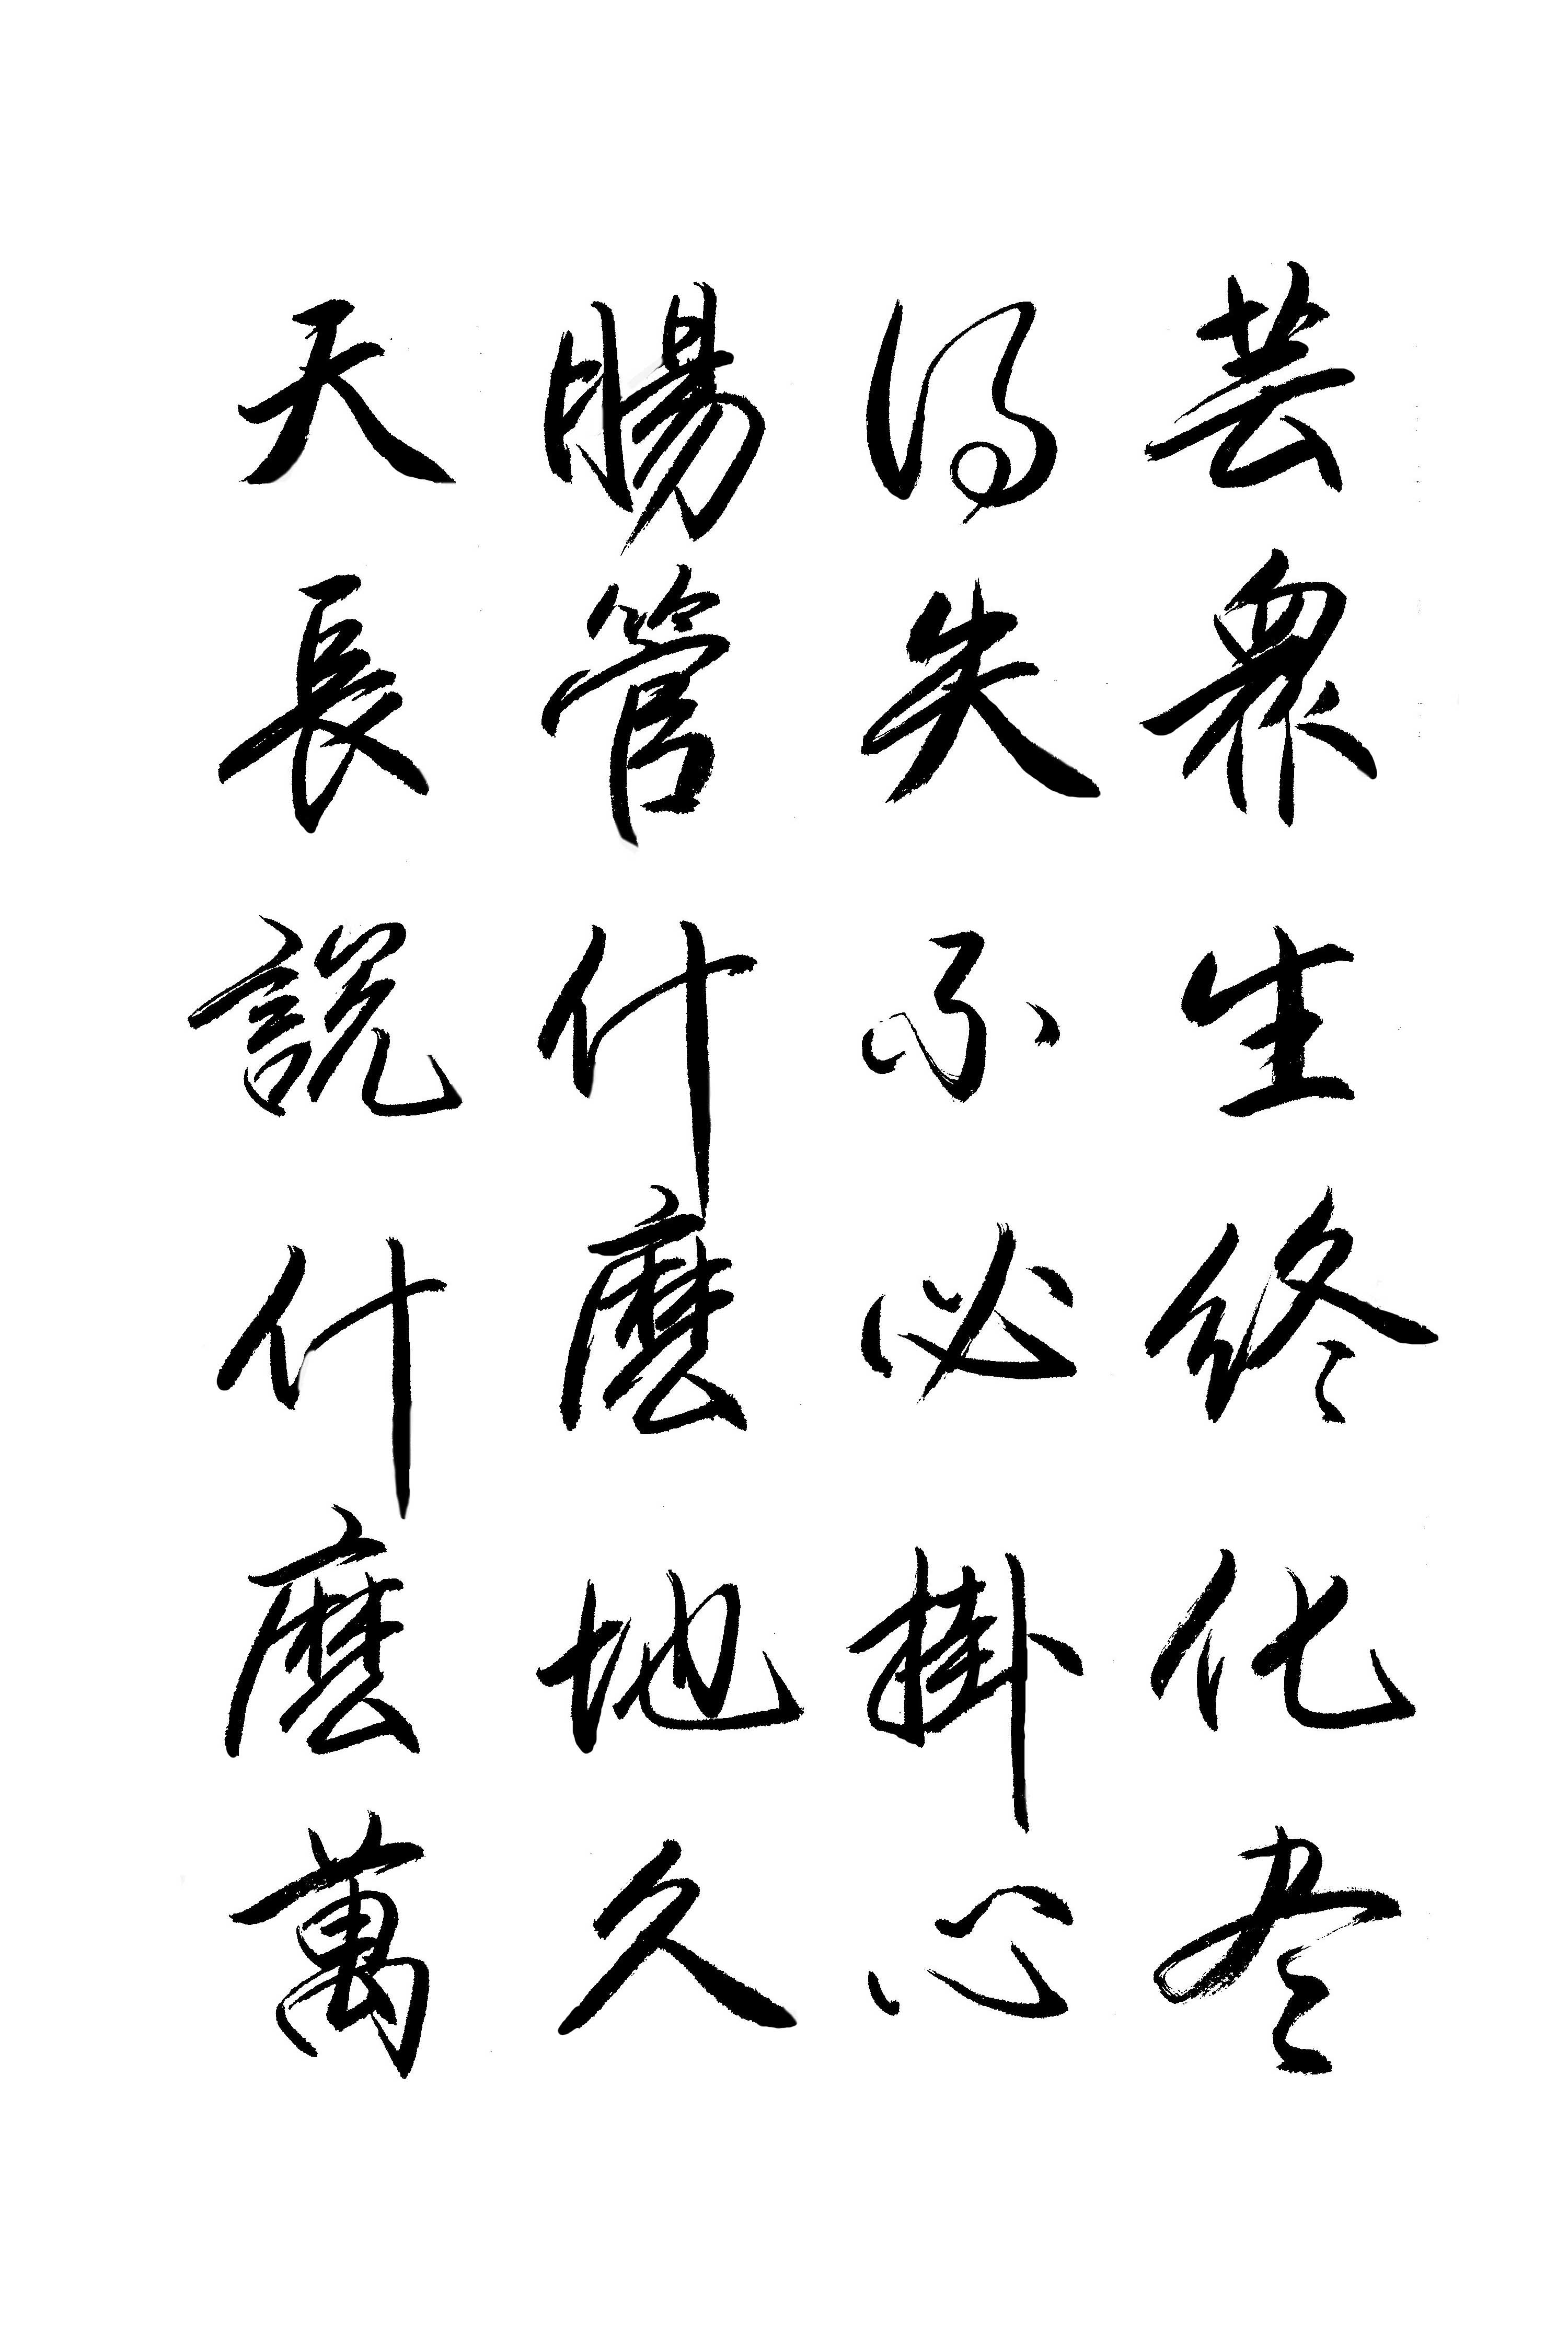 芸眾生終化尽
得失不必掛心
腸管什麼地久
天長說什麼萬